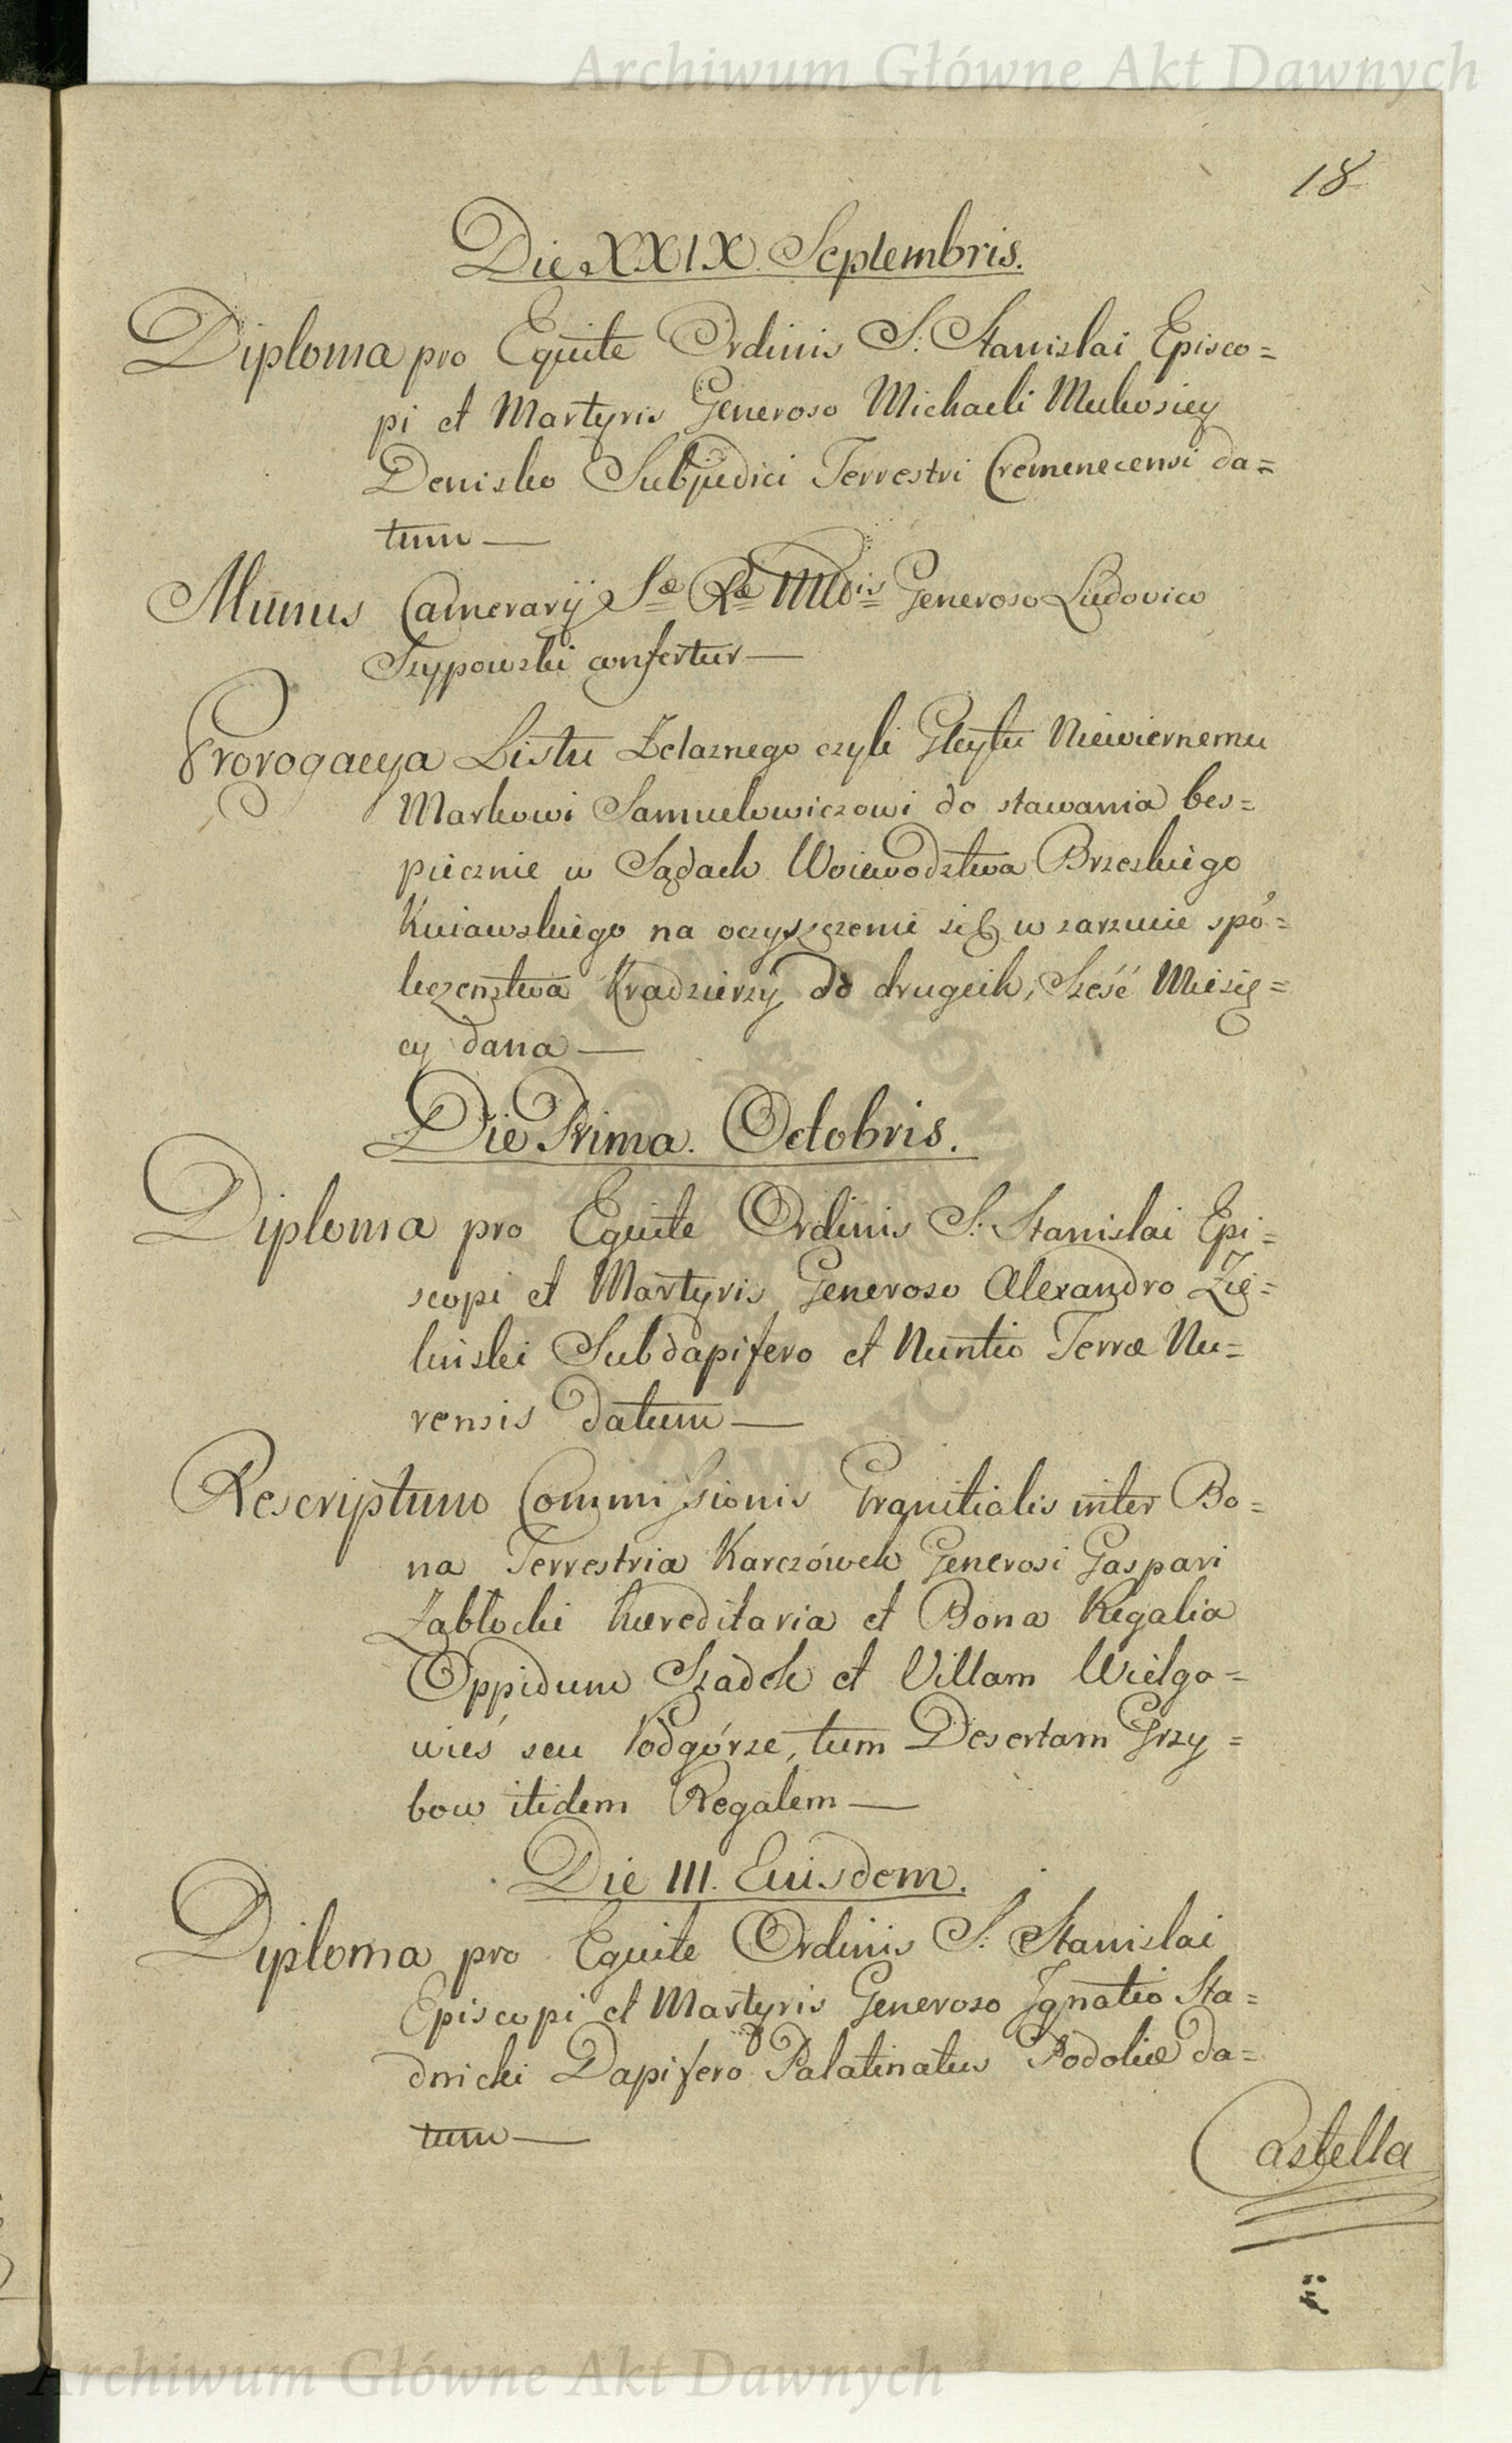 Archiwum Główne Akt Dawnych
18
Die XXIX. Septembris.
Diploma pro Equite Ordinis S. Stanislai Episco=
pi et Martyris Generoso Michaeli Mukosiey
Denisko Subjudici Terrestri Cremenecensi da=
tum —
Munus Camerarij Sæ Ræ Mttis Generoso Ludovico
Szypowski confertur —
Prorogacya Listu Żelaznego czyli Gleytu Niewiernemu
Markowi Samuelowiczowi do stawania bes=
piecznie w Sądach Woiewodztwa Brzeskiego
Kuiawskiego na oczyszczenie się w zarzucie spó=
leczenstwa Kradzierzy do drugich, Sześć Miesię=
cy dana —
Die Prima. Octobris.
Diploma pro Equite Ordinis S. Stanislai Epi=
scopi et Martyris Generoso Alexandro Zie=
linski Subdapifero et Nuntio Terræ Nu=
rensis datum —
Rescriptum Commissionis Granitialis inter Bo=
na Terrestria Karczówek Generosi Gaspari
Zabłocki hæreditaria et Bona Regalia
Oppidum Szadek et Villam Wielgo=
wieś seu Podgórze, tum Desertam Grzy=
bow itidem Regalem —
Die III. Euisdem.
Diploma pro Equite Ordinis S. Stanislai
Episcopi et Martyris Generoso Ignatio Sta=
dnicki Dapifero Palatinatus Podoliæ da=
tum —
Castella
Archiwum Główne Akt Dawnych